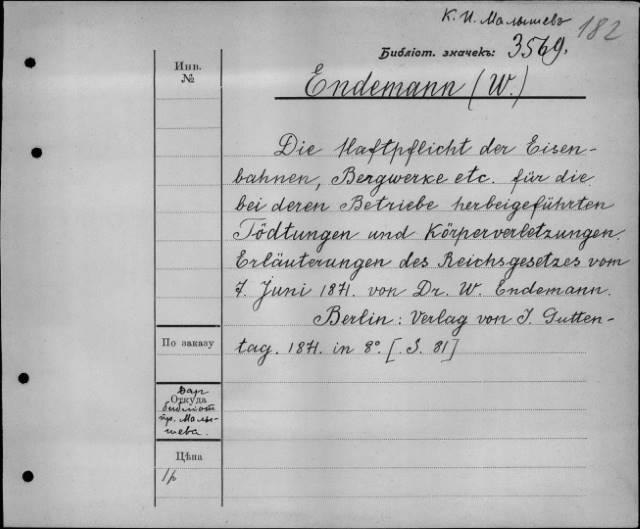 К. И. Малышевъ
182
Библіот. значекъ: 3569.
Инв.
№
Endemann (W.)
Die Haftpflicht der Eisen-
bahnen, Bergwerke etc. für die
bei deren Betriebe herbeigeführten
Tödtungen und Körperverletzungen.
Erläuterungen des Reichsgesetzes vom
7. Juni 1871. von Dr. W. Endemann.
Berlin: Verlag von J. Gutten-
По заказу
tag. 1871. in 8° [. S. 81]
Дар
Откуда
библіот
пр. Малы-
шева.
Цѣна
1 р